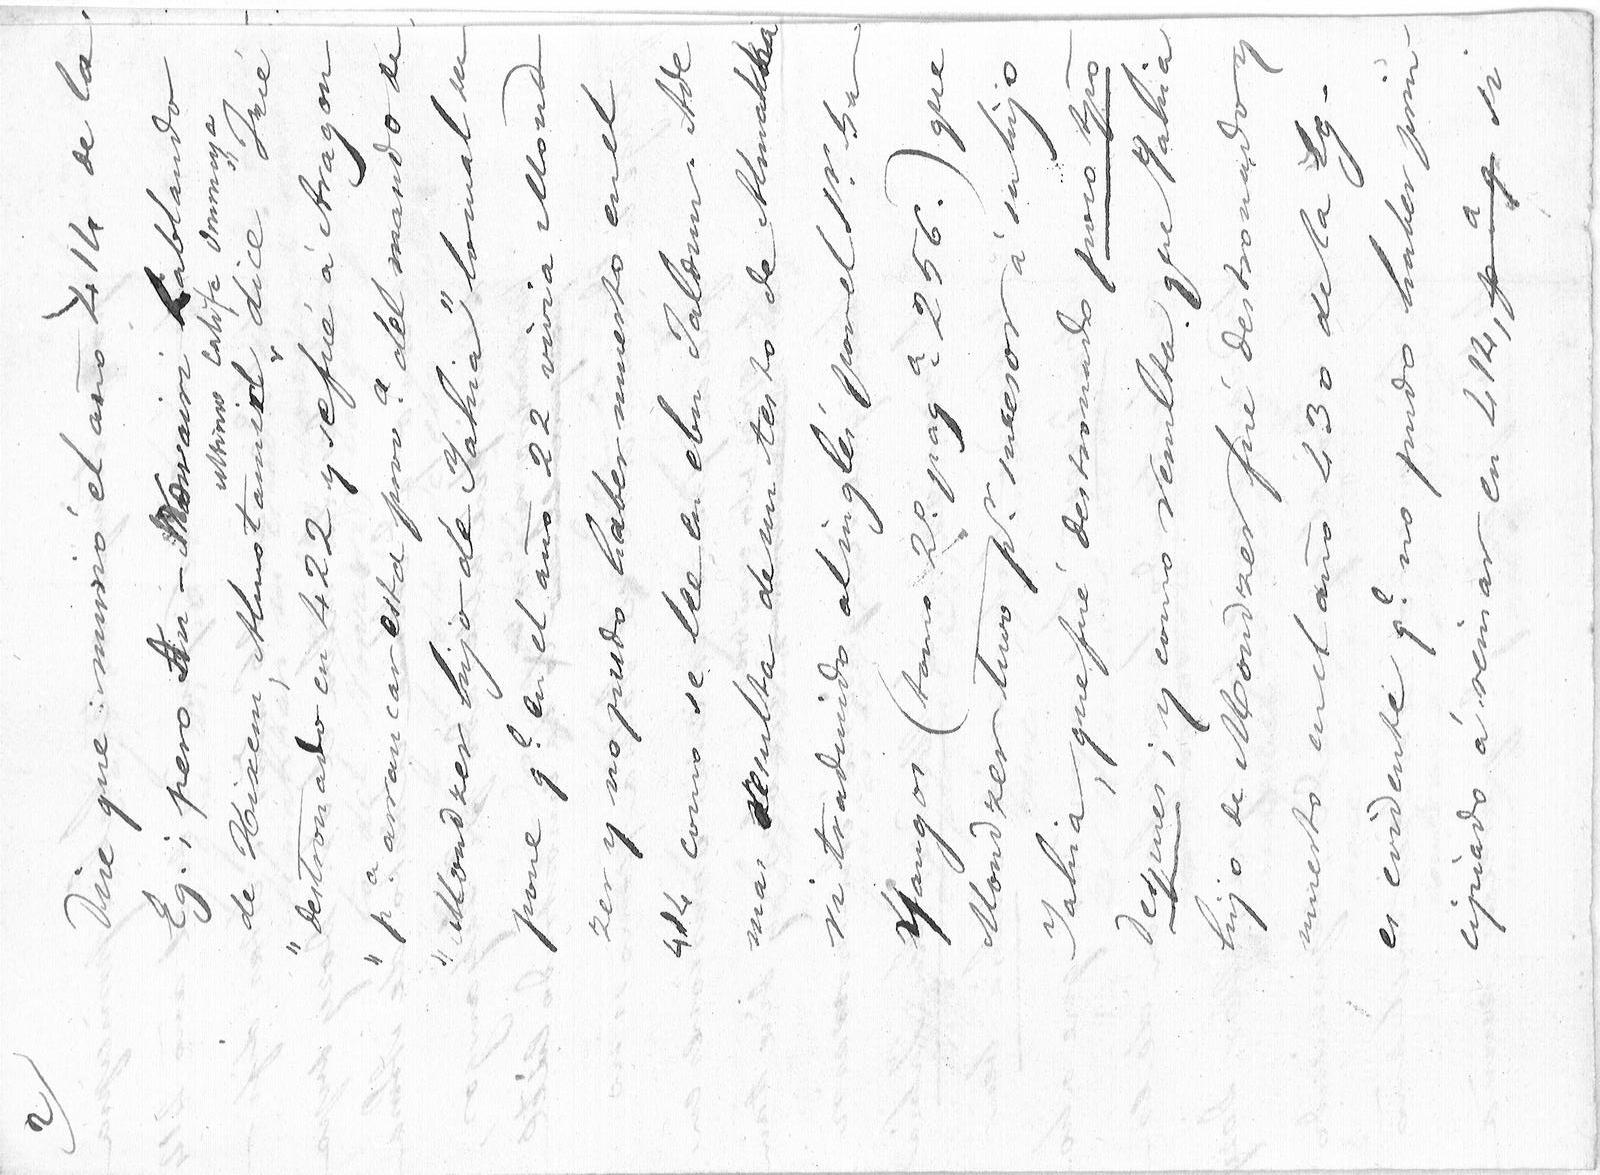 2)
Dice que murió el año 414 de la
Eg.; pero An-Nowairi hablando
ultimo Califa Ommiya
de Hixem Almostamid, dice "Fué
"destronado en 422 y se fué á Aragon
"p.ª arrancar esta prov.ª del mando de
"Mondzer hijo de Yahia" lo cual su
pone q.e en el año 22 vivia Mond
zer y no pudo haber muerto en el
414 como se lee en ebn Jaldun. Ade
mas resulta de un testo de Almakka
ri traducido al inglés por el Sr. Ga
yangos (tomo 2.º pag.ª 256.) que
Mondzer tuvo p.r sucesor á su hijo
Yahia, que fué destronado poco tpo
despues; y como resulta que Yahia
hijo de Mondzer fué destronado y
muerto en el año 430 de la Eg.
es evidente q.e no pudo haber prin
cipiado á reinar en 414, p.a q si